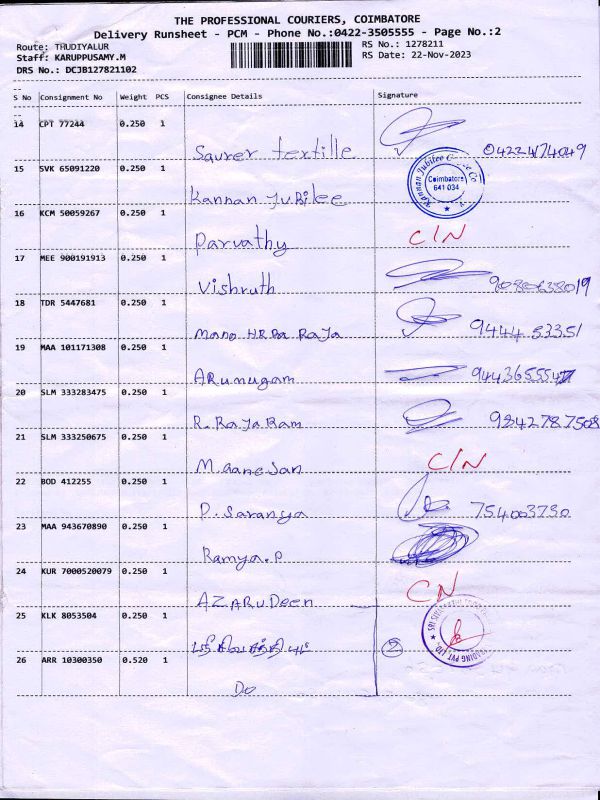 THE PROFESSIONAL COURIERS, COIMBATORE
Delivery Runsheet - PCM - Phone No.:0422-3505555 - Page No.:2
Route: THUDIYALUR
Staff: KARUPPUSAMY.M
DRS No.: DCJB127821102
RS No.: 1278211
RS Date: 22-Nov-2023
S No Consignment No Weight PCS Consignee Details Signature
14 CPT 77244 0.250 1
Saurer textille
15 SVK 65091220 0.250 1
Kannan Jubilee
Coimbatore
641 034
16 KCM 50059267 0.250 1
Parvathy C/N
17 MEE 900191913 0.250 1
Vishruth
18 TDR 5447681 0.250 1
Mano HRBa Raja 9444 53351
19 MAA 101171308 0.250 1
ARumugam
20 SLM 333283475 0.250 1
R. Raja Ram 9842787508
21 SLM 333250675 0.250 1
M.aanesan C/N
22 BOD 412255 0.250 1
P. Saranya 754003730
23 MAA 943670890 0.250 1
Ramya.P
24 KUR 7000520079 0.250 1
AZARUDeen CN
25 KLK 8053504 0.250 1
2
26 ARR 10300350 0.520 1
Do